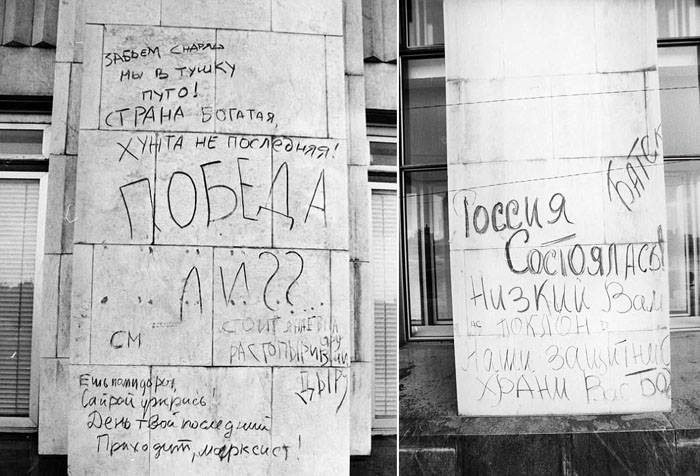 ЗАБЬЕМ СНАРЯД
МЫ В ТУШКУ
ПУГО!
СТРАНА БОГАТАЯ,
ХУНТА НЕ ПОСЛЕДНЯЯ!
ПОБЕДА
... ЛИ??...
СМ
СТОИТ ЯНАЕВ НА
ЯРУ
РАСТОПЫРИВ
ДЫРУ
Ешь помидоры,
Сайрой
День твой последний
Приходит, марксист!
РОССИЯ
СОСТОЯЛАСЬ!
НИЗКИЙ ВАМ
ПОКЛОН
НАШИ ЗАЩИТНИ
ХРАНИ ВАС БО